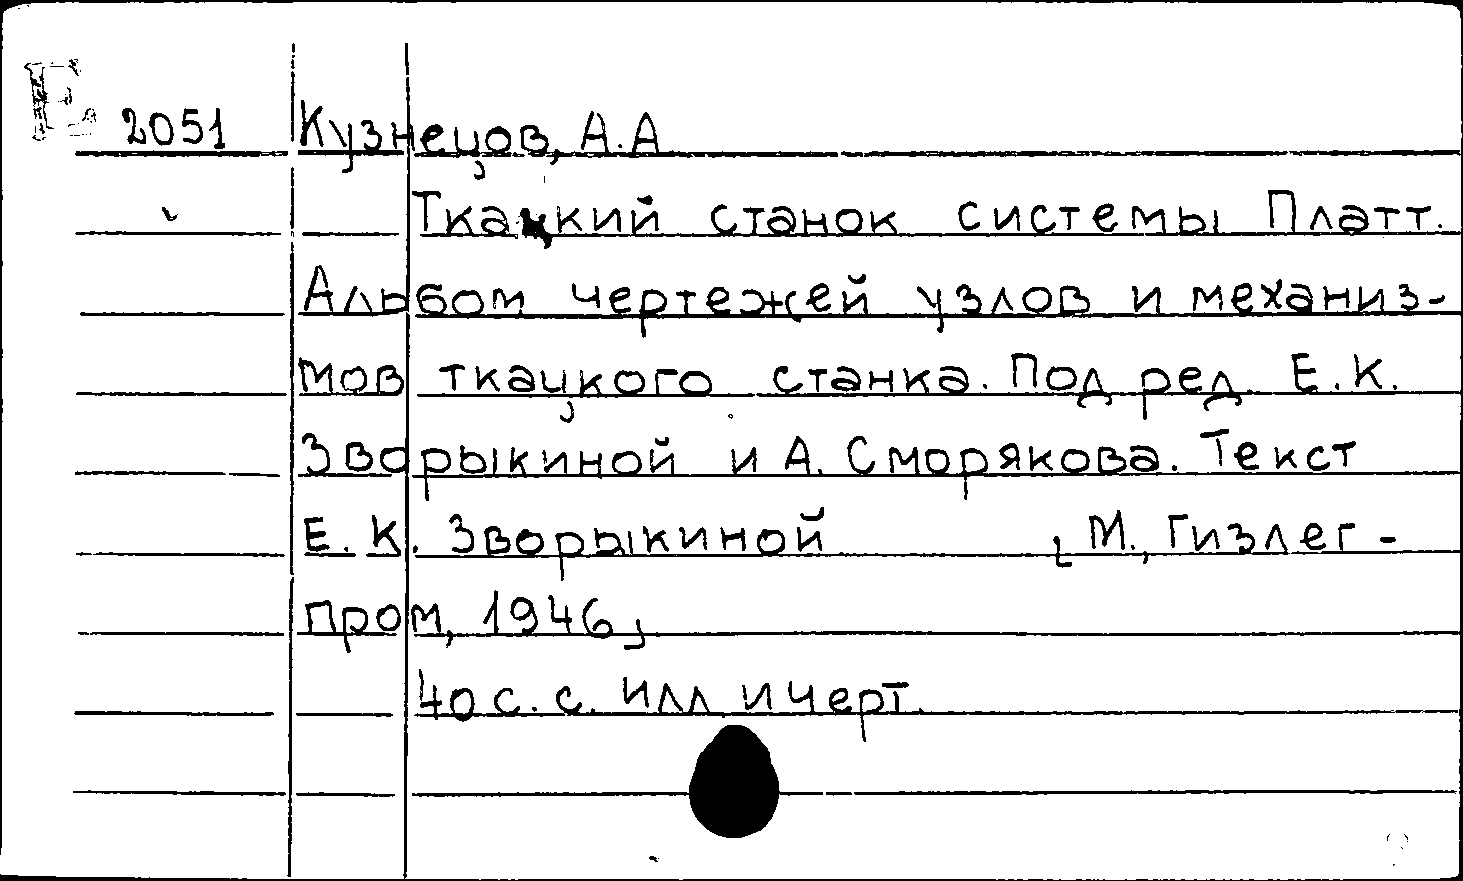 Е 2051 Кузнецов, А.А
Ткацкий станок системы Платт.
Альбом чертежей узлов и механиз-
мов ткацкого станка. Под ред. Е.К.
Зворыкиной и А. Сморякова. Текст
Е.К. Зворыкиной [М., Гизлег-
пром, 1946]
40 с. с. илл и черт.